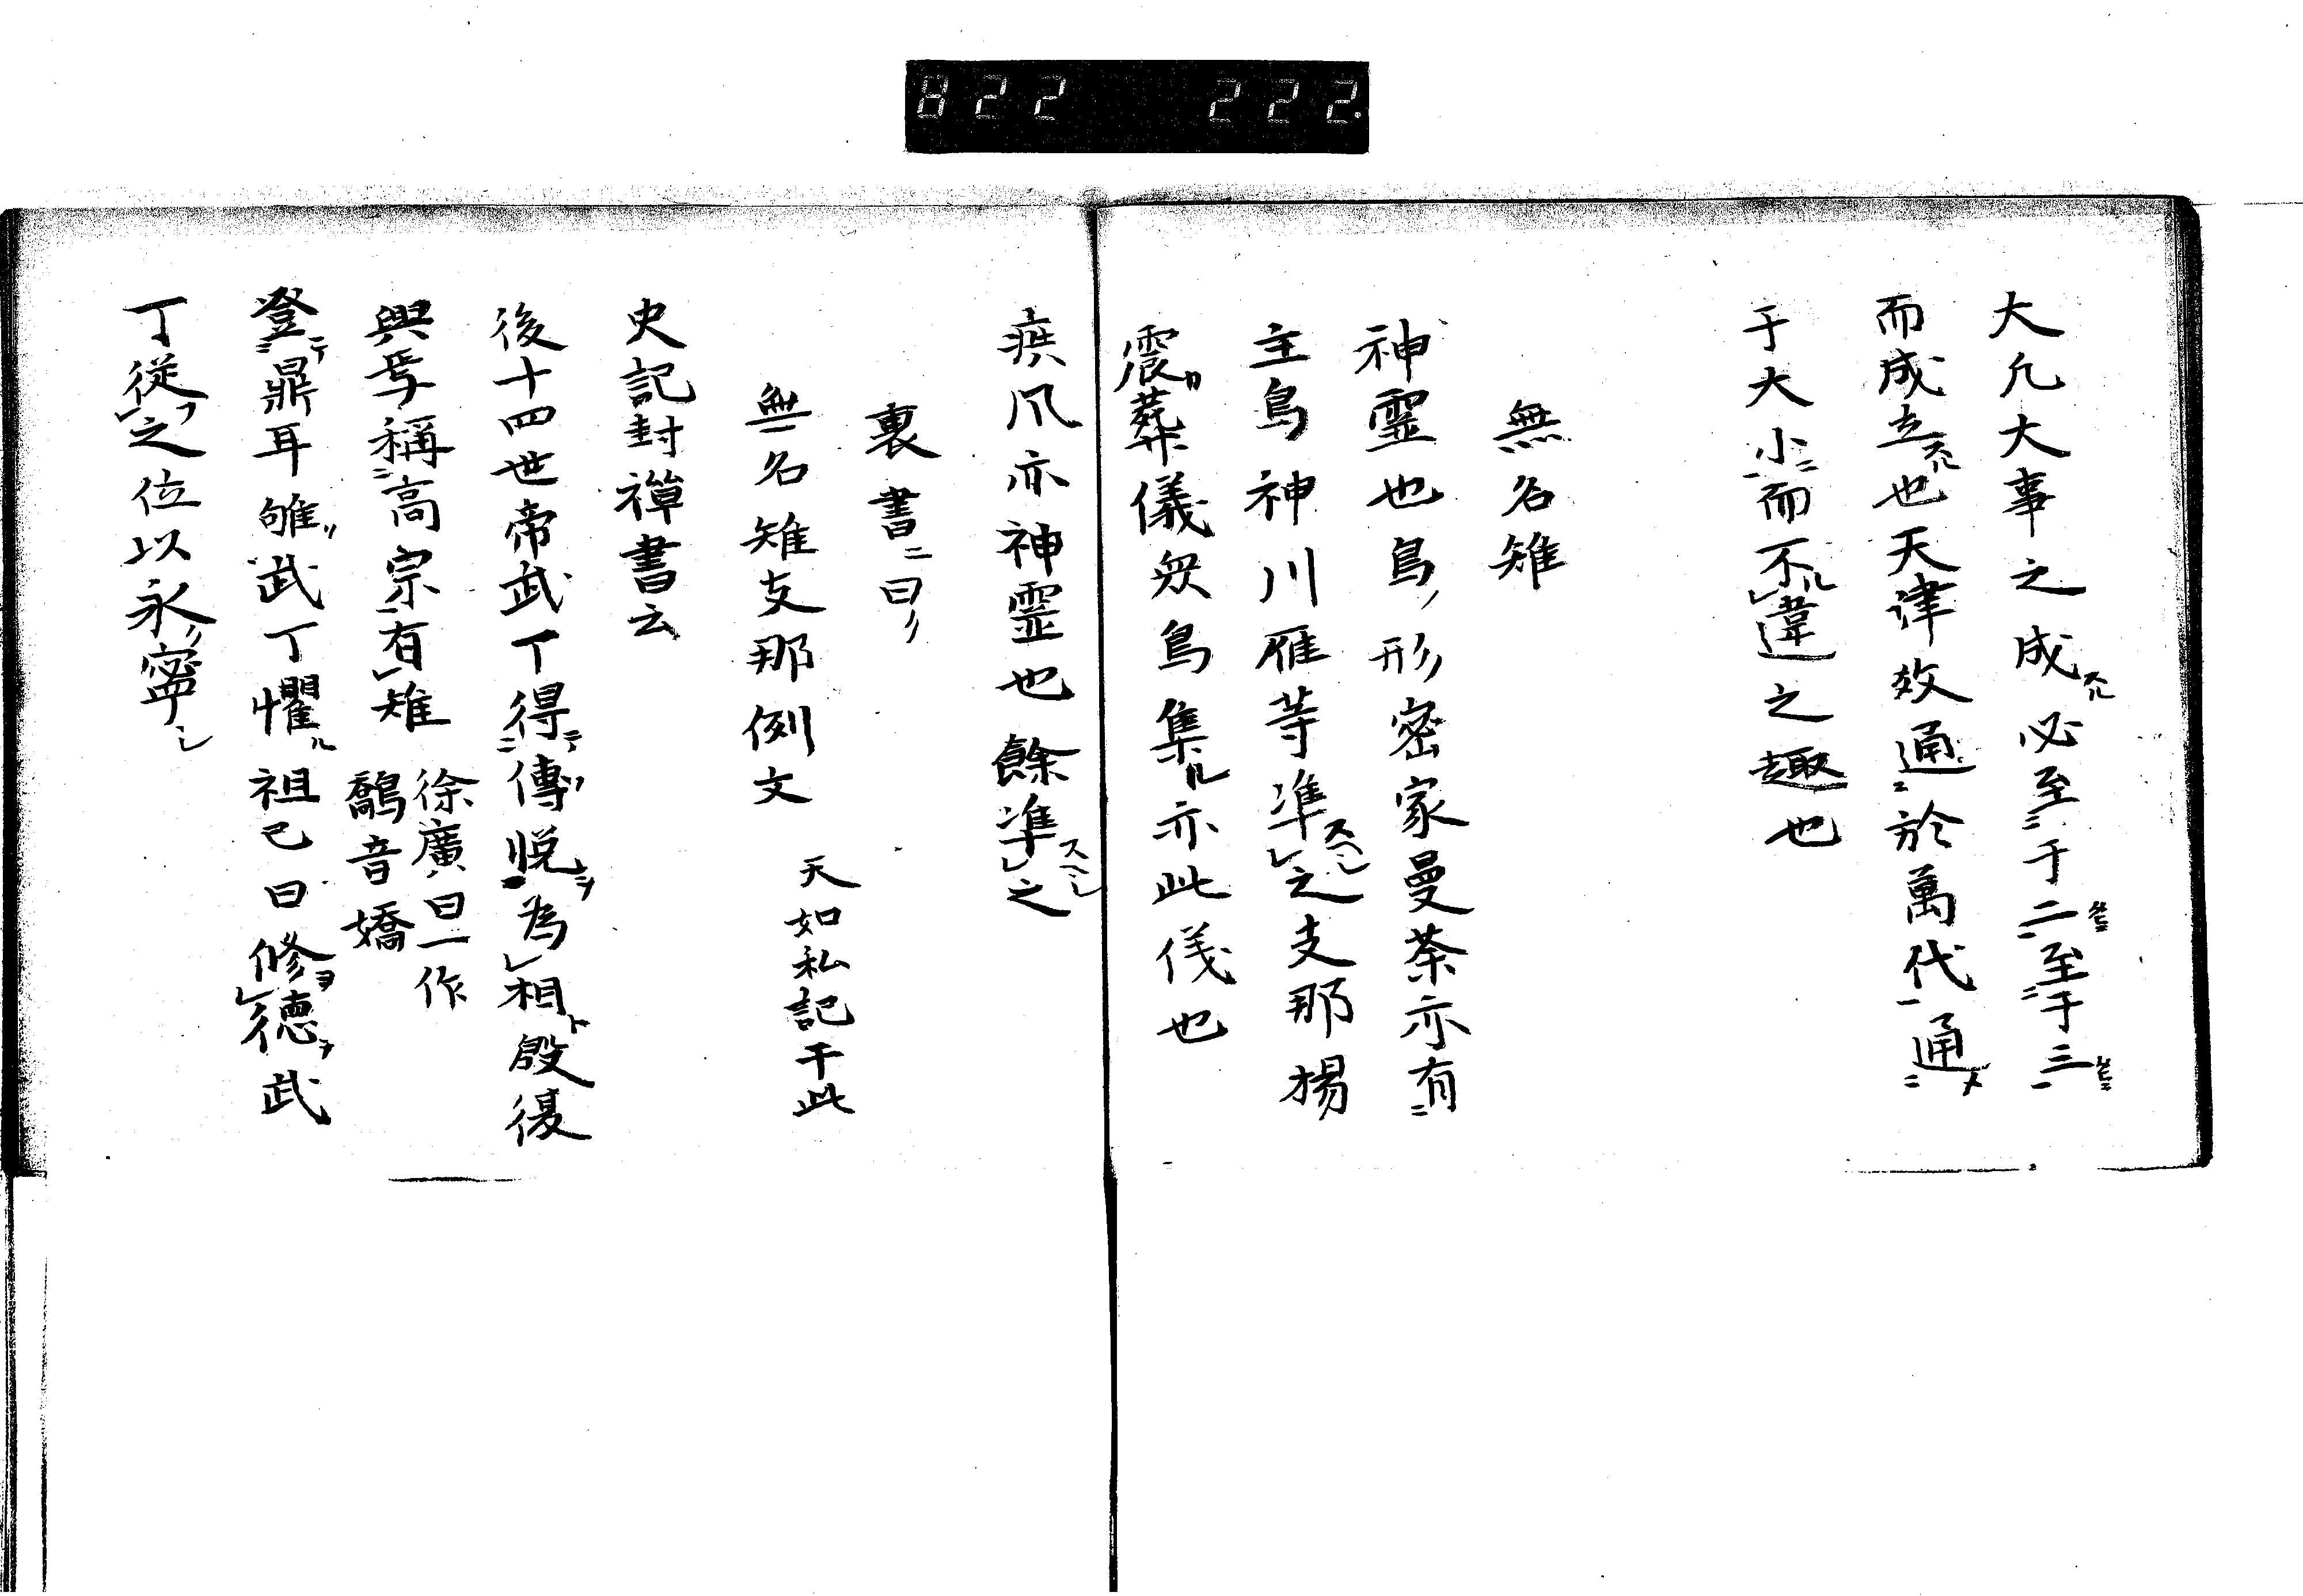 822 222.
大凢大事之成スル必至二于二一度ニ至二于三一度ニ
而成立スル也天津效通二於萬代一通二メ
于大小一ニ而不レ違ル之趣也
無名雉
神霊也鳥ノ形ハ密家曼荼亦有二
主鳥神川雁等準レ之スヘシ支那楊
震カ葬儀衆鳥集ル亦此儀也
疾風亦神霊也餘準レ之スヘシ
裏書ニ曰ク
無名雉支那例文
天如私記干此
史記封禅書云
後十四世帝武丁得二テ傅悦一ヲ為レ相ト殷復
興焉稱二高宗一有レ雉
徐廣曰一作
鷮音嬌
登二テ鼎耳雊ク武丁懼ル祖己曰修レヨ徳ヲ武
丁従レフ之位以永ク寧シ